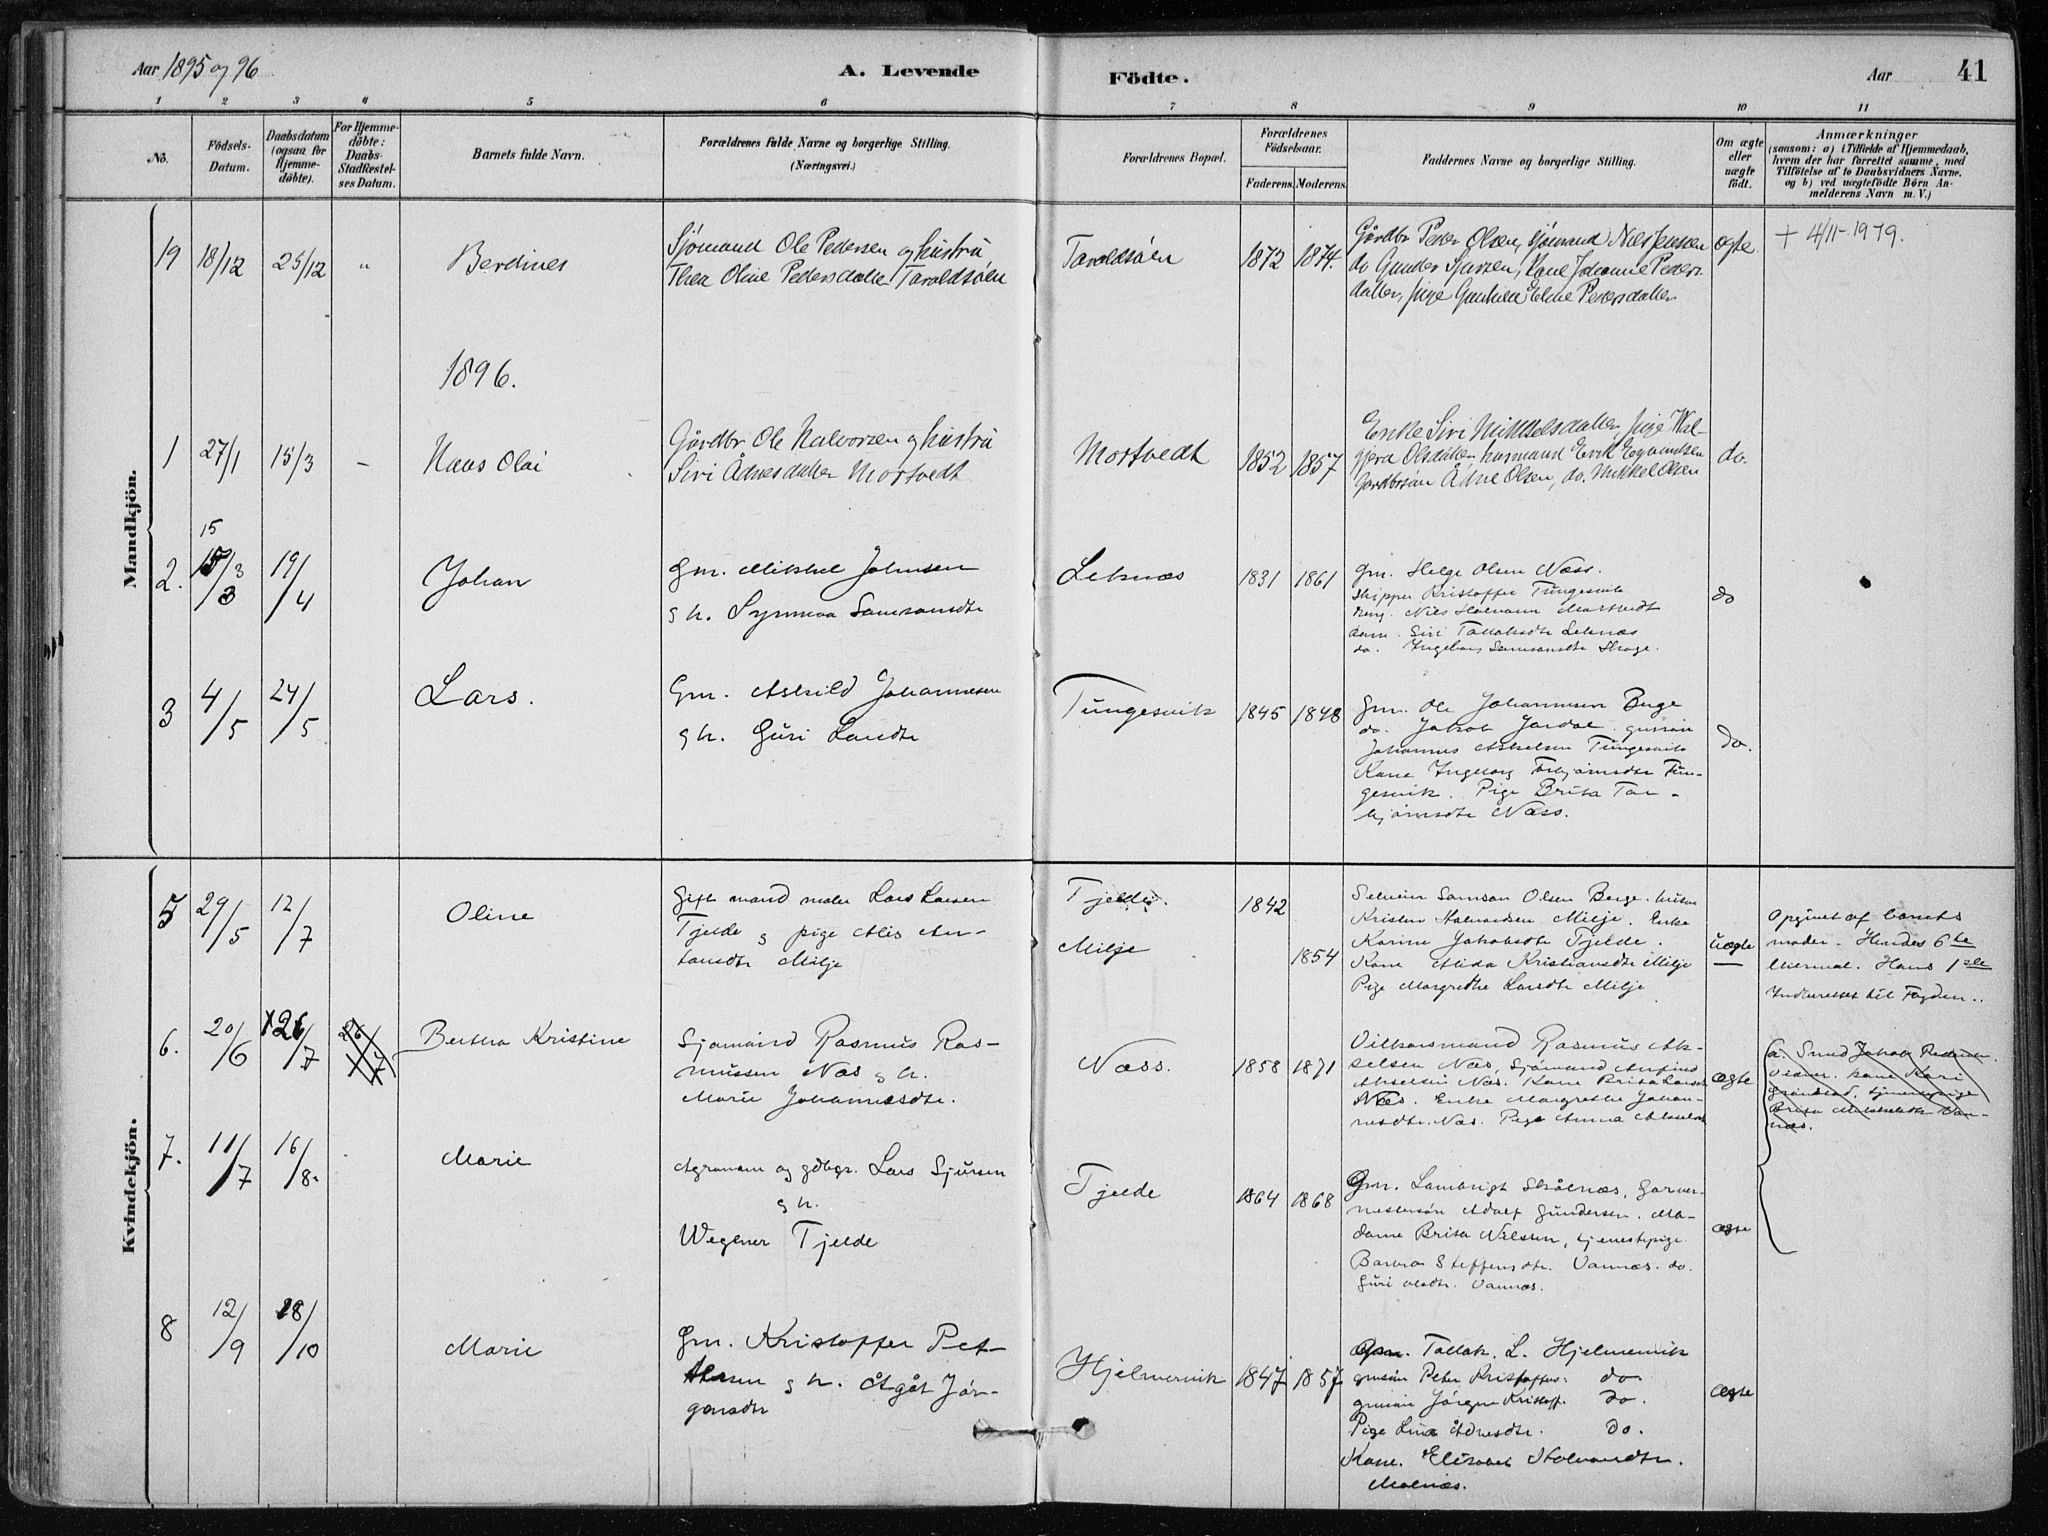 Aar 1895 og 96
A. Levende
Födte.
Aar
41
1 2 3 4 5 6 7 8 9 10 11
No.
Födsels-
Datum.
Daabsdatum
(ogsaa for
Hjemme-
döbte).
For Hjemme-
döbte:
Daabs-
Stadfæstel-
ses Datum.
Barnets fulde Navn.
Forældrenes fulde Navne og borgerlige Stilling.
(Næringsvei.)
Forældrenes Bopæl.
Forældrenes
Födselsaar.
Faderens. Moderens.
Faddernes Navne og borgerlige Stilling.
Om ægte
eller
uægte
födt.
Anmærkninger
(saasom: a) i Tilfælde af Hjemmedaab,
hvem der har forrettet samme, med
Tilföielse af to Daabsvidners Navne,
og b) ved uægtefödte Börn An-
melderens Navn m. V.)
Mandkjön.
19 18/12 25/12 " Berdines
Sjømand Ole Pedersen og hustru
Thea Oline Pedersdatter Taraldsøen
Taraldsøen 1872 1874.
Gårdbr Peder Olsen, sjømand Nils Jensen
do Gunder Sjursen, Kone Johanne Peders-
datter, pige Gunhild Eline Pedersdatter
ægte
+ 4/11-1979.
1896.
1 27/1 15/3 - Hans Olai
Gårdbr Ole Halvorsen og hustru
Siri Ådnesdatter Mortvedt
Mortvedt 1852 1857
Enke Siri Mikkelsdatter, pige
Olsdatter husmand Erik
Gardbrsön Ådne Olsen, do. Mikkel Olsen
do.
15
2. 15/3 19/4 Johan
Gm. Mikkel Johnsen
g h. Synnva Samsonsdtr
Leknæs 1831 1861
Gm. Helge Olsen Næss.
Skipper Kristoffer Tungesvik
Nils Halvorsen Mortvedt
Siri Tollaksdtr Leknæs
do. Ingeborg Samsonsdtr Skoge.
do
3 4/5 24/5 Lars.
Gm. Askild Johannesen
g h. Guri Larsdtr
Tungesvik 1845 1848
Gm. Ole Johannesen Berge
do. Jakob Jordal gmsön
Johannes Askelsen Tungesvik
Kone Ingeborg Torbjørnsdtr Tun-
gesvik. Pige Brita Tor-
bjørnsdtr Næss.
do.
Kvindekjön.
5 29/5 12/7 Oline
Gift mand maler Lars Larsen
Tjelde g pige Alis An-
tonsdtr Milje
Tjelde. 1842
Milje 1854
Selveier Samson Olsen Berge.
Kristen Halvorsen Milje. Enke
Karine Jakobsdtr Tjelde.
Kone Alida Kristiansdtr Milje
Pige Margrethe Larsdtr Milje
uægte
Opgivet af barnets
moder. Hendes 6te
Leiermaal. Hans 1ste
Indberettet til Fogden..
6. 20/6 26/7 Bertha Kristine
Sjømand Rasmus Ras-
mussen Næs g h.
Marie Johannesdtr.
Næss. 1858 1871
Vilkorsmand Rasmus Ak-
selsen Næs, Sjømand Anfind
Akselsen Næs. Kone Brita Larsdtr
Næs. Enke Margrethe Johan-
nesdtr. Næs. Pige Anna Akselsdtr
ægte
a. Smed Jakob Pedersen
kone Kari
tjenestepige
Brita Mikkelsdtr Van-
næs.
7. 11/7 16/8. Marie
Agronom og gdbgr. Lars Sjursen
g h.
Wegener Tjelde
Tjelde 1864 1868
Gm. Lambrigt Skålnæs, Garver-
mestersön Adolf Gundersen. Ma-
dame Brita Nilssen, tjenestepige
Barbra Steffensdtr. Vannæs. do.
Guri Olsdtr. Vannæs.
ægte
8 12/9 18/10 Marie
Gm. Kristoffer Pet-
tersen g h. Ågåt Jør-
gensdtr
Hjelmervik 1847 1857
Gm. Tollak. L. Hjelmervik
gmsön Peter Kristoffers. do
gmsön Jørgen Kristoff. do.
Pige Lina Ådnesdtr. do.
Kone. Elisabet Halvorsdtr.
Malnæs.
ægte